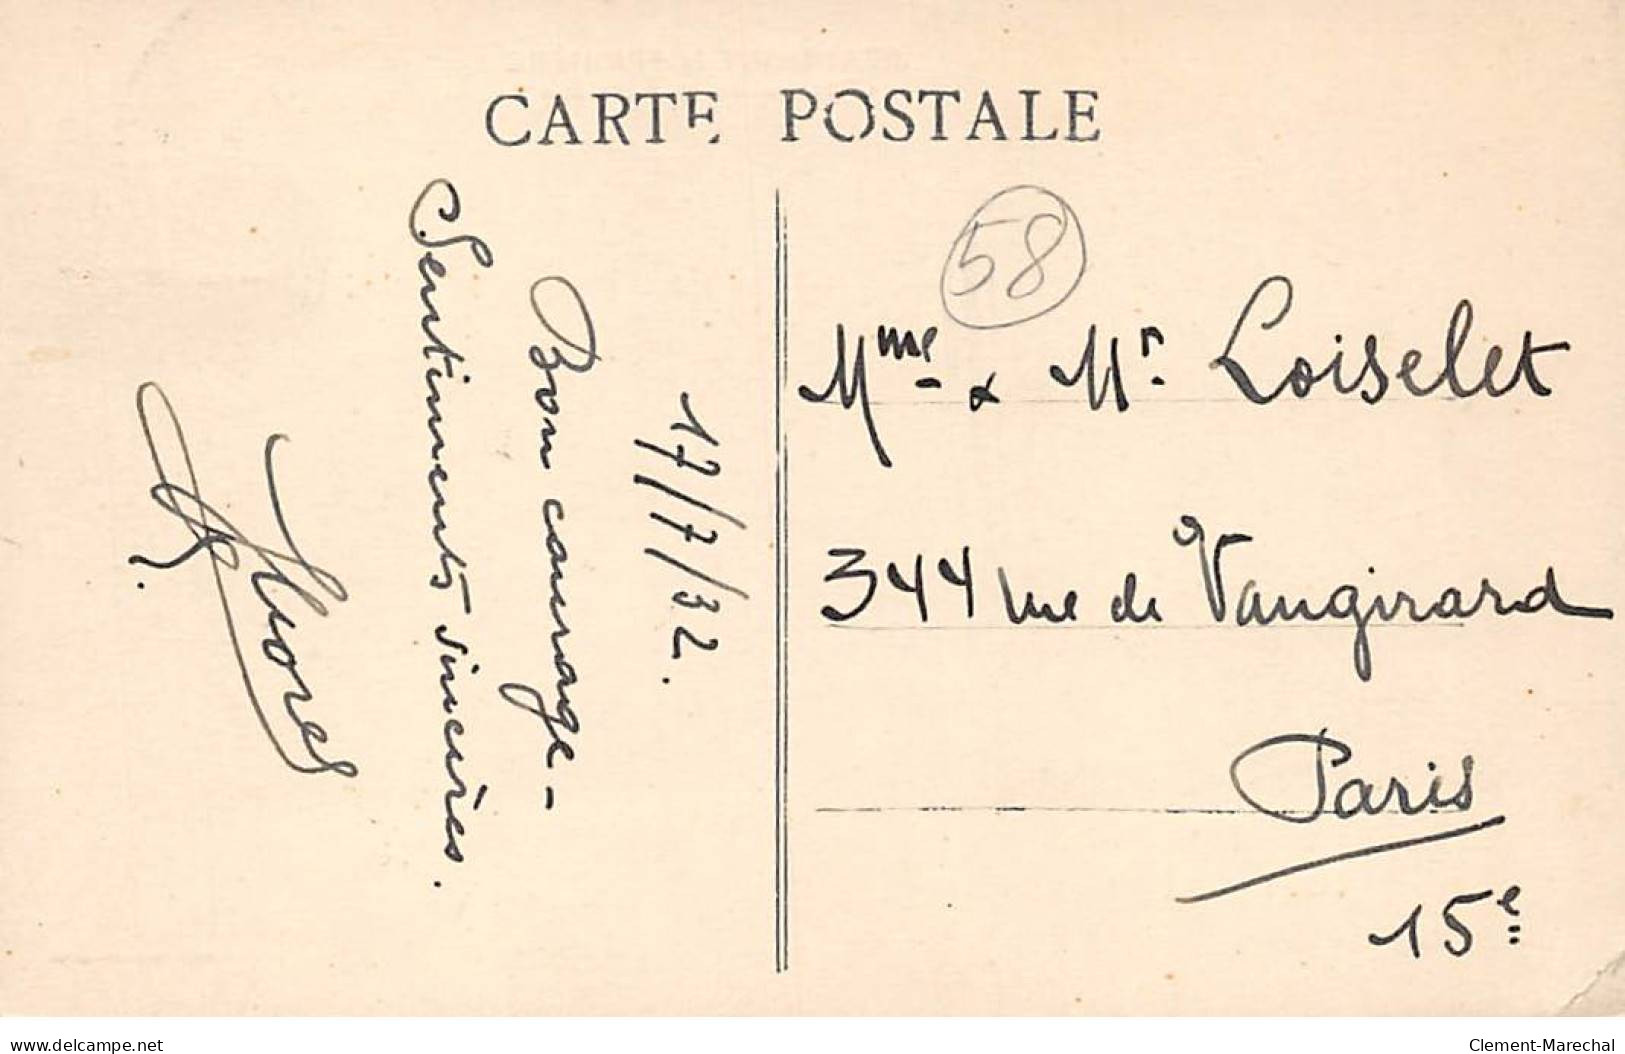 CARTE POSTALE
17/7/32.
Bon courage -
Sentiments sincères.
58
Mme. & Mr. Loiselet
344 rue de Vaugirard
Paris
15e
www.delcampe.net
Clement-Marechal